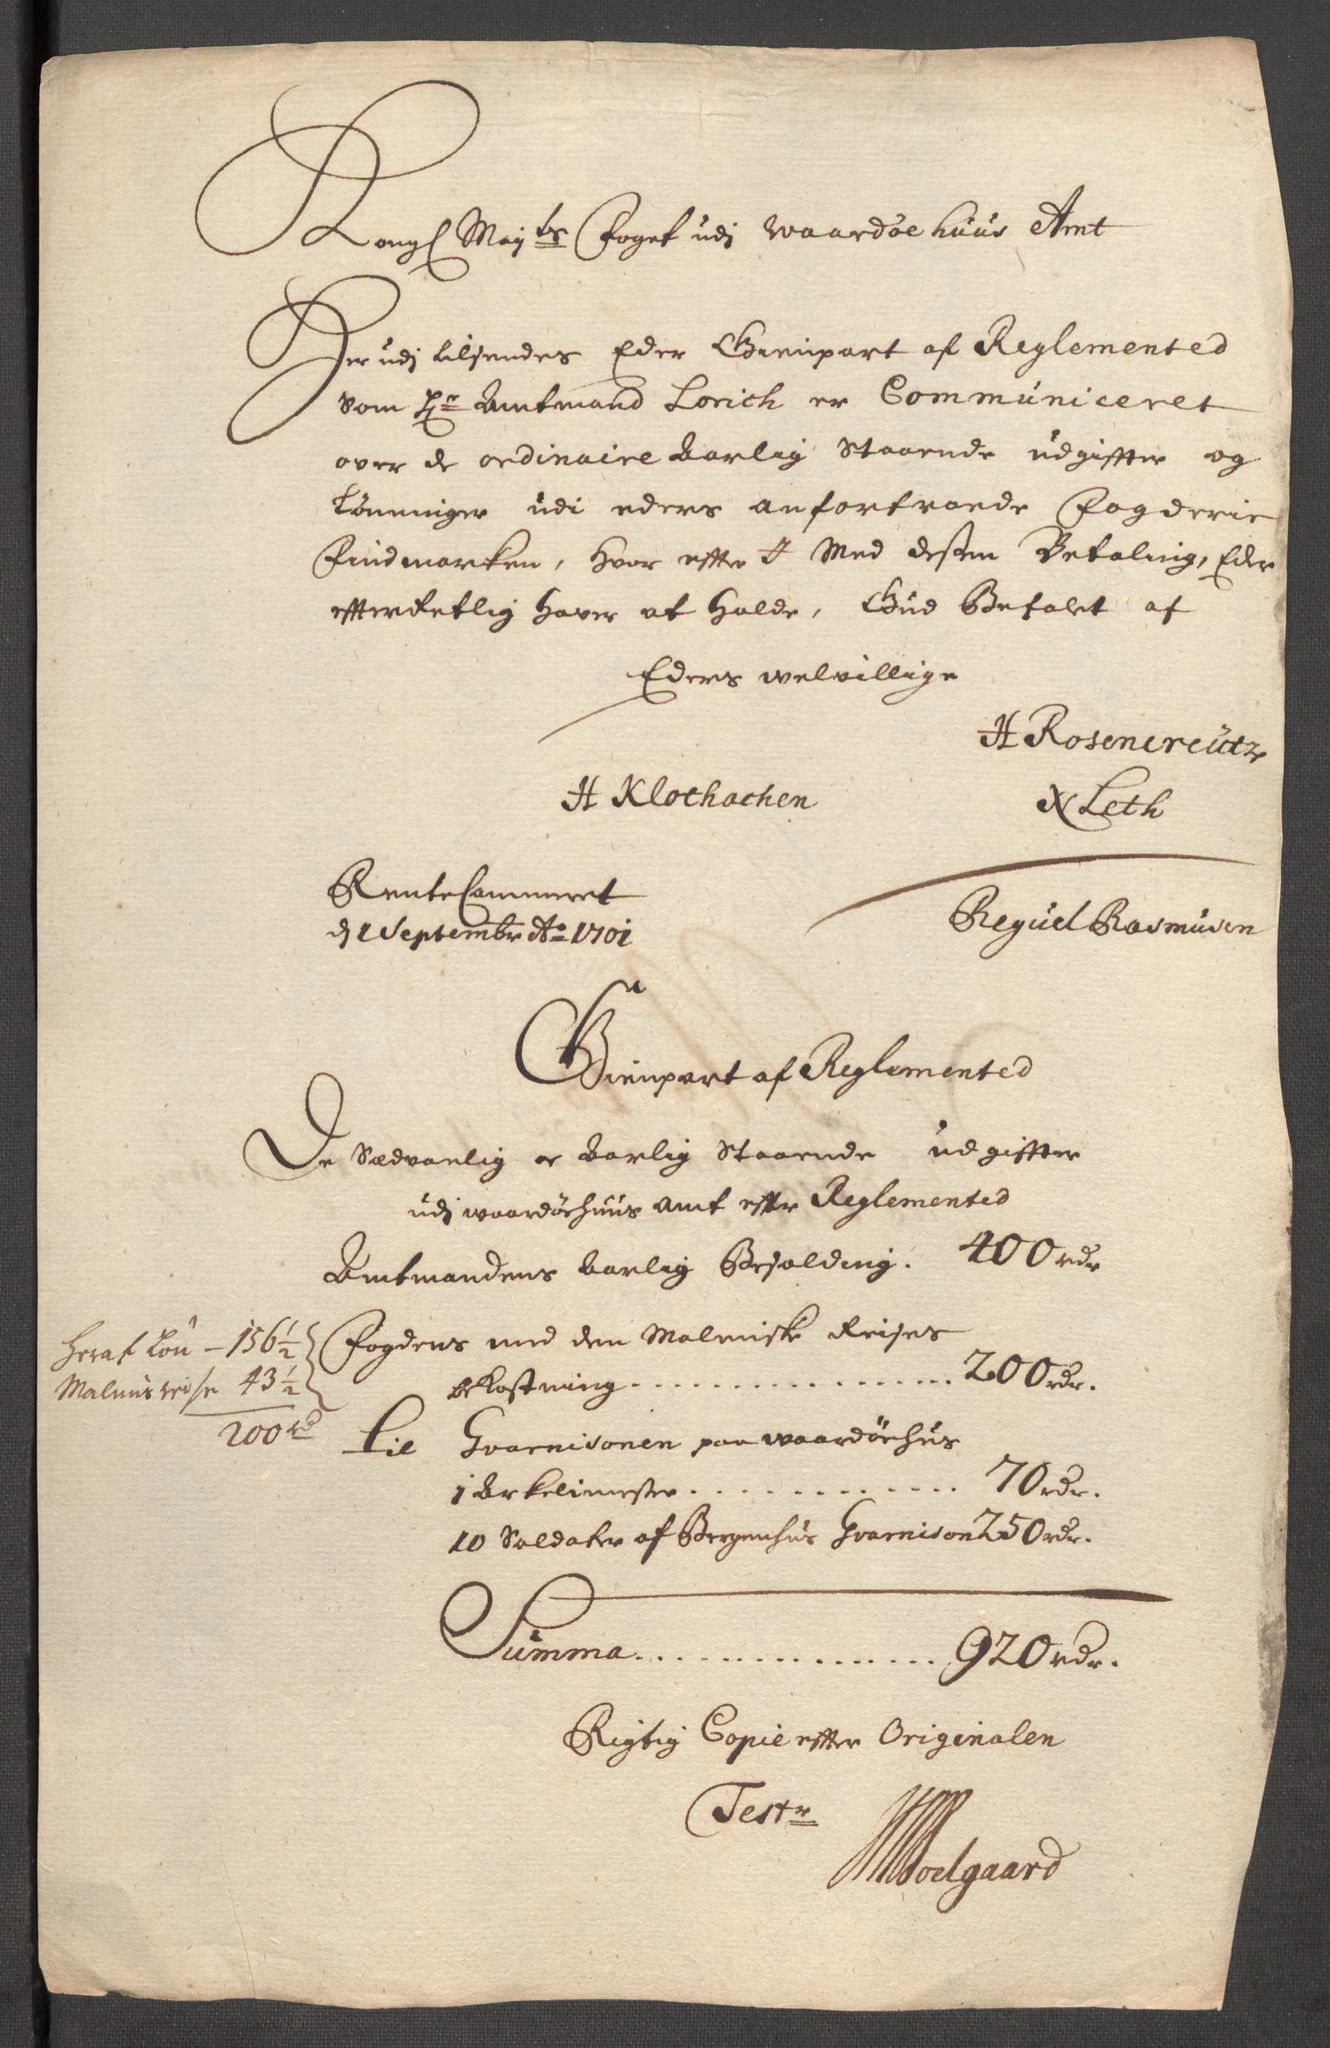 Kongl Mayts Foget udj Waardøehuus Amt
Herudj tilsendes Eder Gienpart af Reglemented
som Hr Amtmand Lorich er Communiceret
over de ordinaire Aarlig Staaende udgiffter og
Lønninger udi eders anfortroede Fogderie
Findmarken, hvor effter I Med dessen Betaling, Eder
effterretlig haver at holde, Gud Befalet af
Eders welvillige
H Rosencreütz
H Klochachen
N Leth
RenteCammeret
dj 1 Septembr Ao 1701
Reguel Rasmusen
Gienpart af Reglemented
De Sædvanlig oc Aarlig Staaende udgiffter
udj waardøehuus Amt effter Reglemented
Amtmandens Aarlig Besolding. 400 rdr
Fogdens med den Malmiske Reises
bekostning................ 200 rdr.
Heraf Løn - 156 1/2
Malmis reise 43 1/2
200 rd
Til Gvarnisonen paa waardøehus
1 Arkelimester............. 70 rdr.
10 Soldater af Bergenhus Gvarnison 250 rdr.
Summa................ 920 rdr.
Rigtig Copie effter Originalen
Testr
Soelgaard